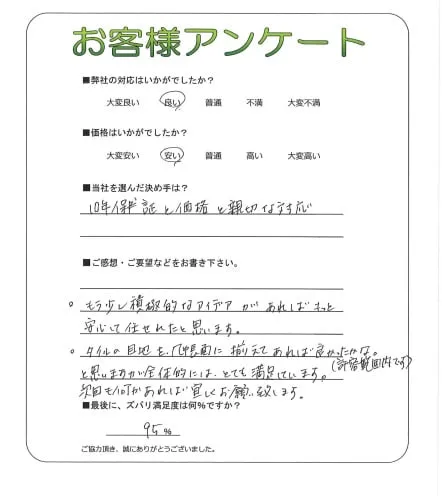 お客様アンケート
■弊社の対応はいかがでしたか？
大変良い 良い 普通 不満 大変不満
■価格はいかがでしたか？
大変安い 安い 普通 高い 大変高い
■当社を選んだ決め手は？
10年保証と価格と親切な対応
■ご感想・ご要望などをお書き下さい。
○ もう少し積極的なアイデアがあればもっと
安心して任せれたと思います。
○ タイルの目地を、几帳面に揃えてあれば良かったかな。
と思いますが全体的には、とても満足しています。
(許容範囲内です)
次回も何かあれば宜しくお願い致します。
■最後に、ズバリ満足度は何％ですか？
95％
ご協力頂き、誠にありがとうございました。